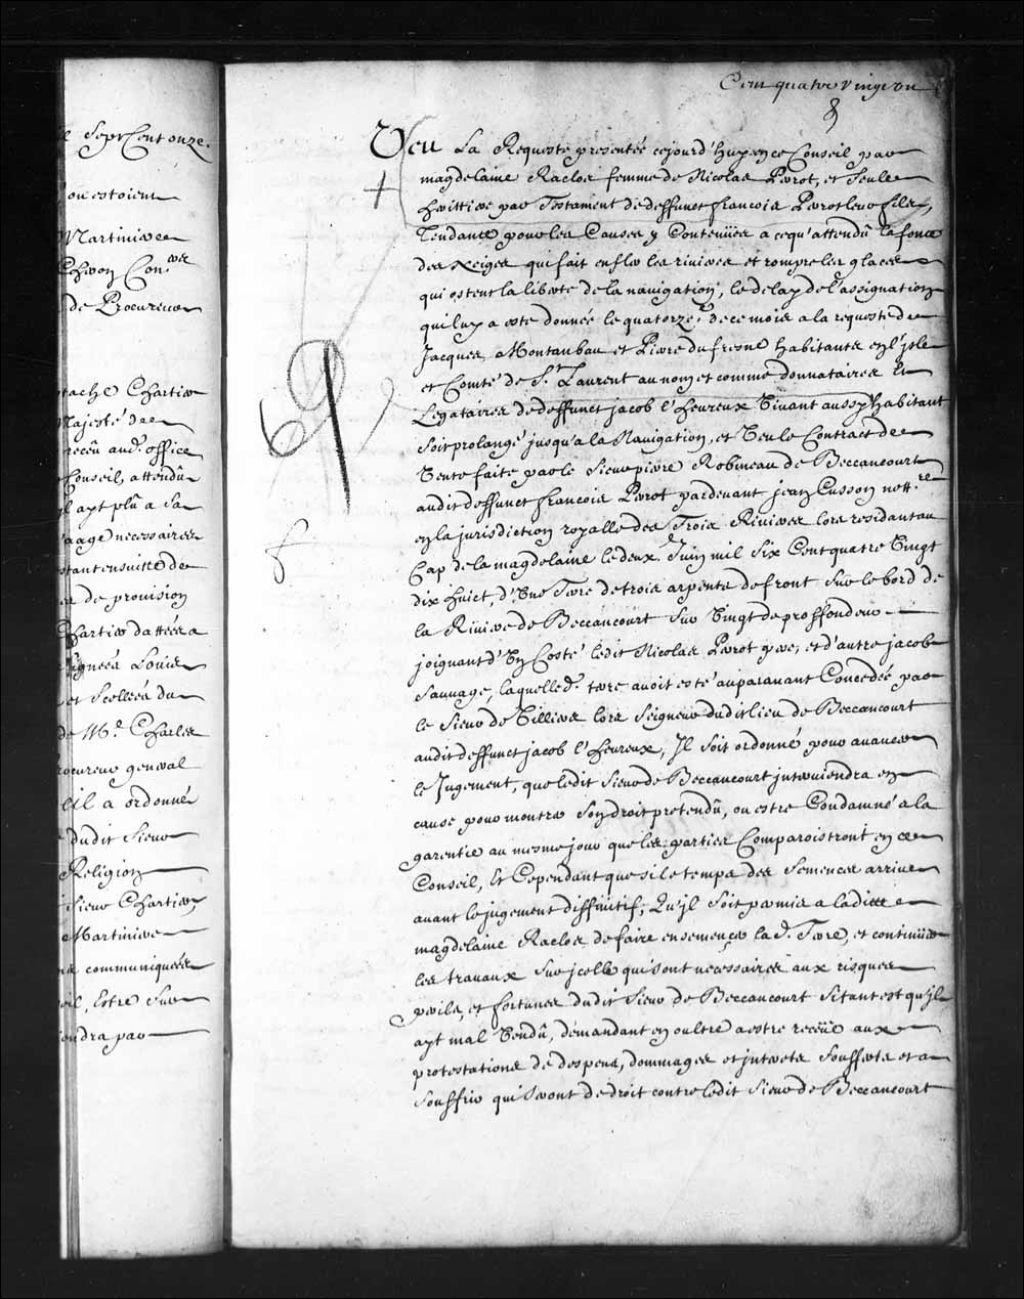 l SeptCent onze.
ou estoient
Martiniere
Chron Con.er
de Procureur
stache Chartier
Majesté de
receu aud. office
Conseil, attendu
Il ayt plû a Sa
aage necessaires
stant ensuitte de
es de provision
Chartier dattées a
signées Louis
et Scellées du
de M.e Charles
rocureur general
eil a ordonné
dudit Sieur
Religion
Sieur Chartier,
Martiniere
communiquées
eil, Estre Sur
endra par
Cent quatre vingt un
8
Veu La Requeste presentée cejourd'huy en ce Conseil par
magdelaine Raclos femme de Nicolas Perrot, et Seulle
heritiere par Testament de deffunct francois Perrot leur fils,
Tendante pour les Causes y Contenües a ce qu'attendu la fonte
des Neiges qui fait enfler les rivieres et rompre les glaces
qui ostent la liberté de la navigation, le delay de l'assignation
qui luy a esté donnée le quatorze.e de ce mois a la requeste de
Jacques Montauban et Pierre dufresne habitants en l'jsle
et Comté de S.t Laurent au nom et comme donnataires Et
Legataires de deffunct jacob l'heureux Vivant aussy habitant
Soit prolangé jusqu'a la Navigation, et Veu le Contract de
Vente faite par le Sieur pierre Robineau de Beccancourt
audit deffunct francois Perrot pardevant jean Cusson nott.re
en la jurisdiction royalle des Trois Rivieres lors residant au
Cap de la magdelaine le deux Juin mil Six Cent quatre Vingt
dix huict, d'Une Terre de trois arpents de front Sur le bord de
la Riviere de Beccancourt Sur Vingt de proffondeur
joignant d'Un Costé ledit Nicolas Perrot pere, et d'autre jacob
Sauvage, laquelle d. terre avoit esté auparavant Concedée par
le Sieur de Villiers lors Seigneur dudit lieu de Beccancourt
audit deffunct jacob l'heureux, Il Soit ordonné pour avancer
le Jugement, que ledit Sieur de Beccancourt interviendra en
cause pour montrer Son droit pretendû, ou estre Condamné a la
garentie au mesme jour que les parties Comparoistront en ce
Conseil, Et Cependant que si le temps des Semences arrive
avant le jugement diffinitif, Qu'jl Soit permis a ladite
magdelaine Raclos de faire ensemencer la d. Terre, et continüer
les travaux Sur jcelle qui Sont necessaires aux risques
perils, et fortunes dudit Sieur de Beccancourt Sitant est qu'jl
ayt mal Vendû, demandant en oultre a estre receüe aux
protestations de despens, dommages et interets Soufferts et a
Souffrir qui Seront de droit contre ledit Sieur de Beccancourt